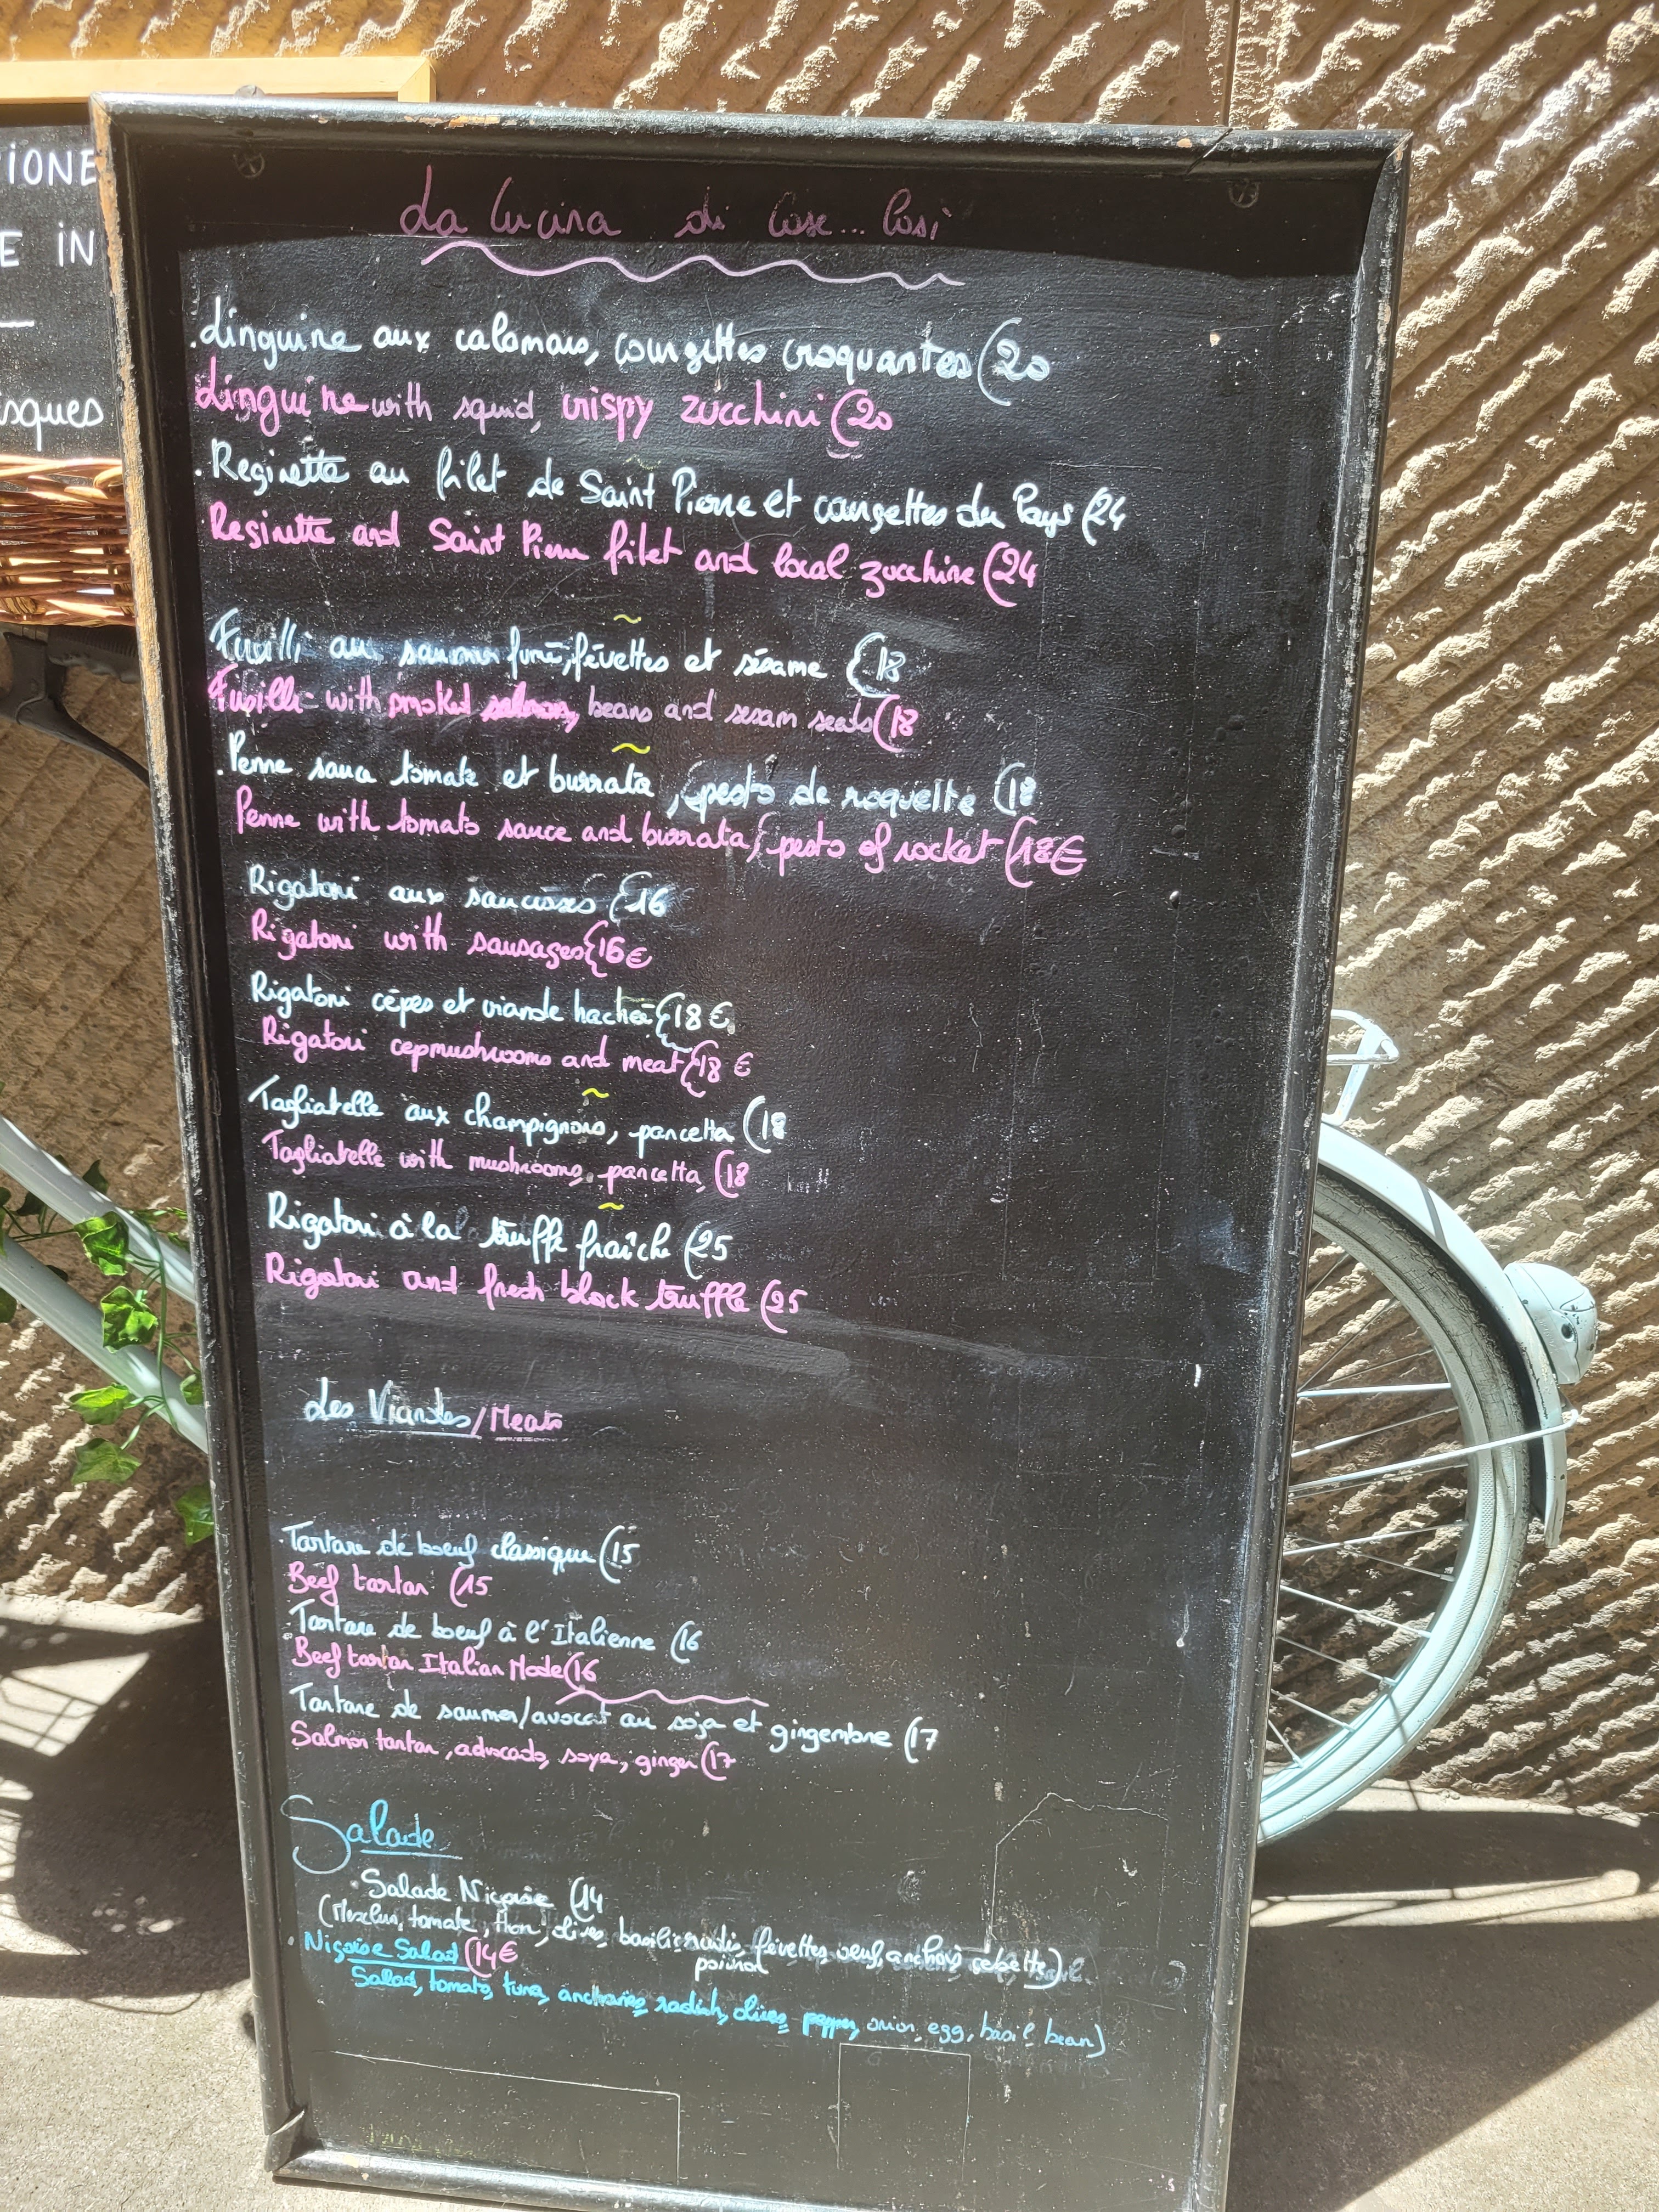 IONE
E IN
sques
La Cucina di Cose... Così
.Linguine aux calamars, courgettes croquantes (20
Linguine with squid, crispy zucchini (20
.Reginette au filet de Saint Pierre et courgettes du Pays (24
Reginette and Saint Pierre filet and local zucchine (24
~
Fusilli au saumon fumé, févettes et sésame (18
Fusilli with smoked salmon, beans and sesam seats (18
~
.Penne sauce tomate et burrata, (pesto de roquette (18
Penne with tomato sauce and burrata, (pesto of rocket (18€
Rigatoni aux saucisses (16
Rigatoni with sausages (16€
Rigatoni cèpes et viande hachée (18€
Rigatoni cepmushrooms and meat (18€
~
Tagliatelle aux champignons, pancetta (18
Tagliatelle with mushrooms, pancetta, (18
~
Rigatoni à la truffe fraîche (25
Rigatoni and fresh black truffle (25
Les Viandes/Meats
.Tartare de boeuf classique (15
Beef tartar (15
Tartare de boeuf à l'Italienne (16
Beef tartar Italian Mode (16
Tartare de saumon/avocat au soja et gingembre (17
Salmon tartar, advocado, soya, ginger (17
Salade
.Salade Niçoise (14
(Mesclun, tomate, thon, olives, basilic, radis, févettes, oeuf, anchois, cébette)
poivron
.Niçoise Salad (14€
Salad, tomato, tuna, anchovies, radish, olives, pepper, onion, egg, basil, bean)